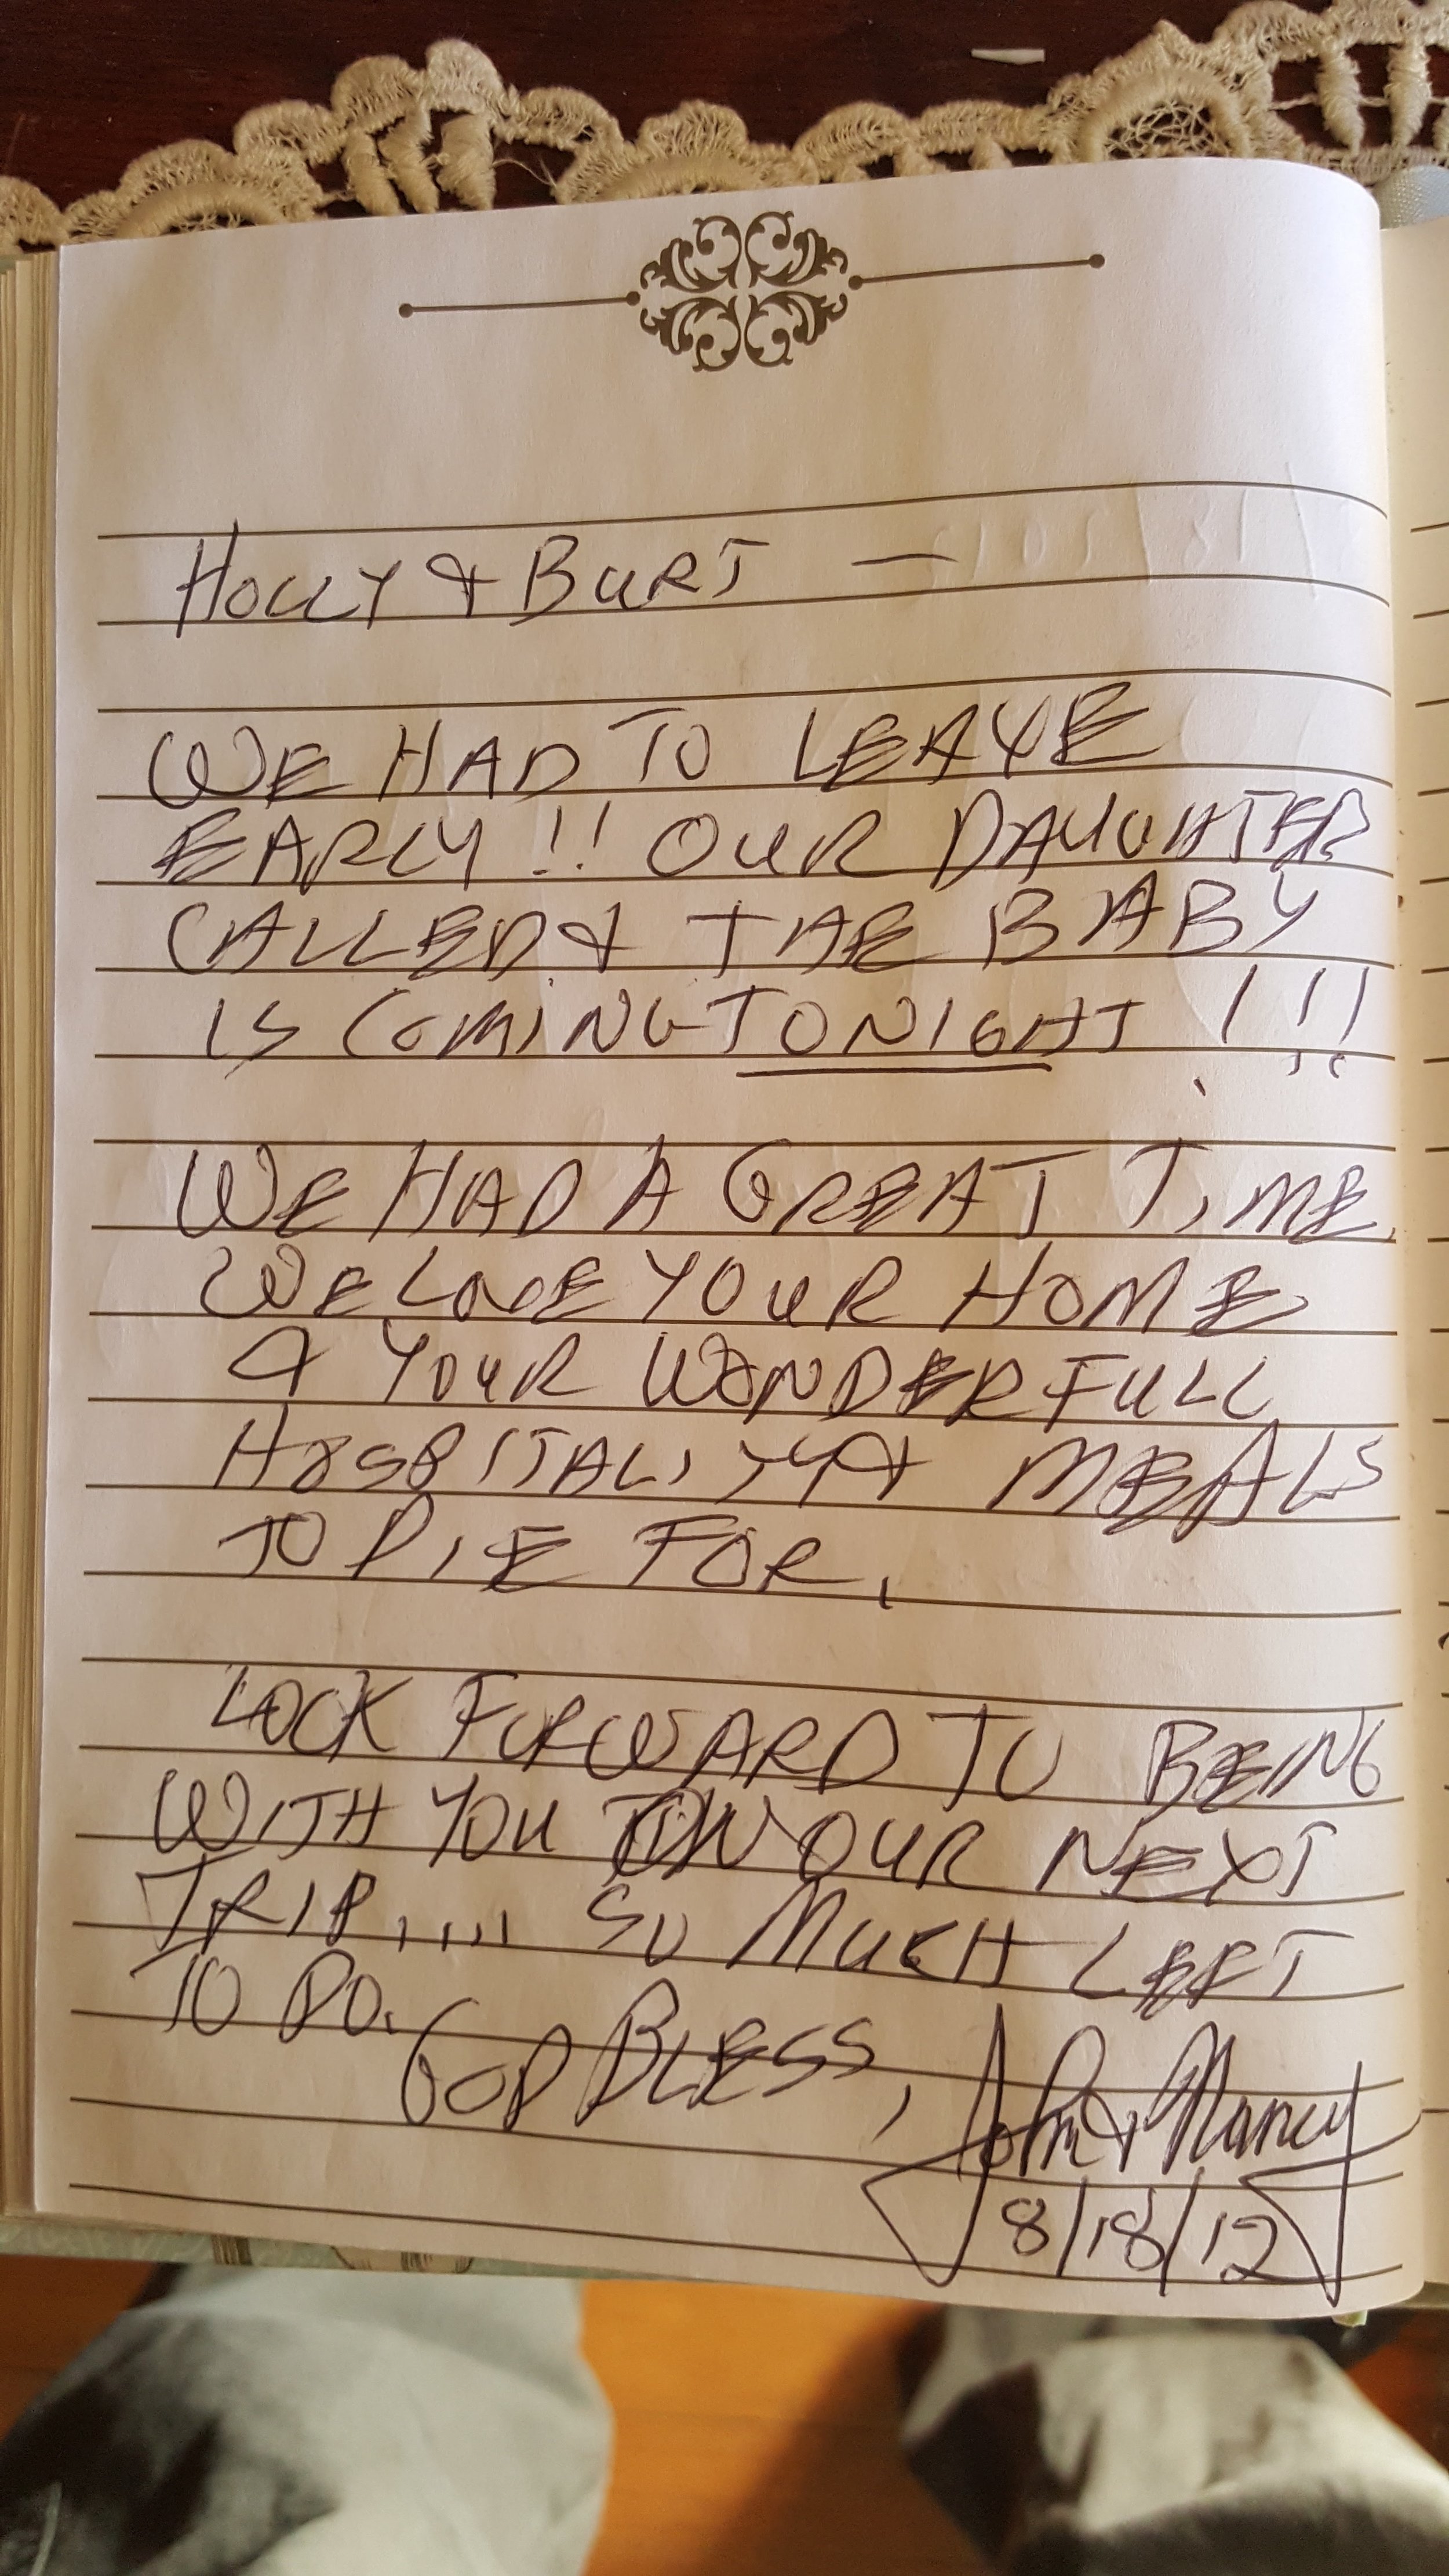 HOLLY & BURT —
WE HAD TO LEAVE
EARLY!! OUR DAUGHTER
CALLED & THE BABY
IS COMING TONIGHT !!!
WE HAD A GREAT TIME.
WE LOVE YOUR HOME
& YOUR WONDERFULL
HOSPITALITY & MEALS
TO DIE FOR.
LOOK FORWARD TO BEING
WITH YOU ON OUR NEXT
TRIP..... SO MUCH LEFT
TO DO. GOD BLESS,
John & Nancy
8/18/12